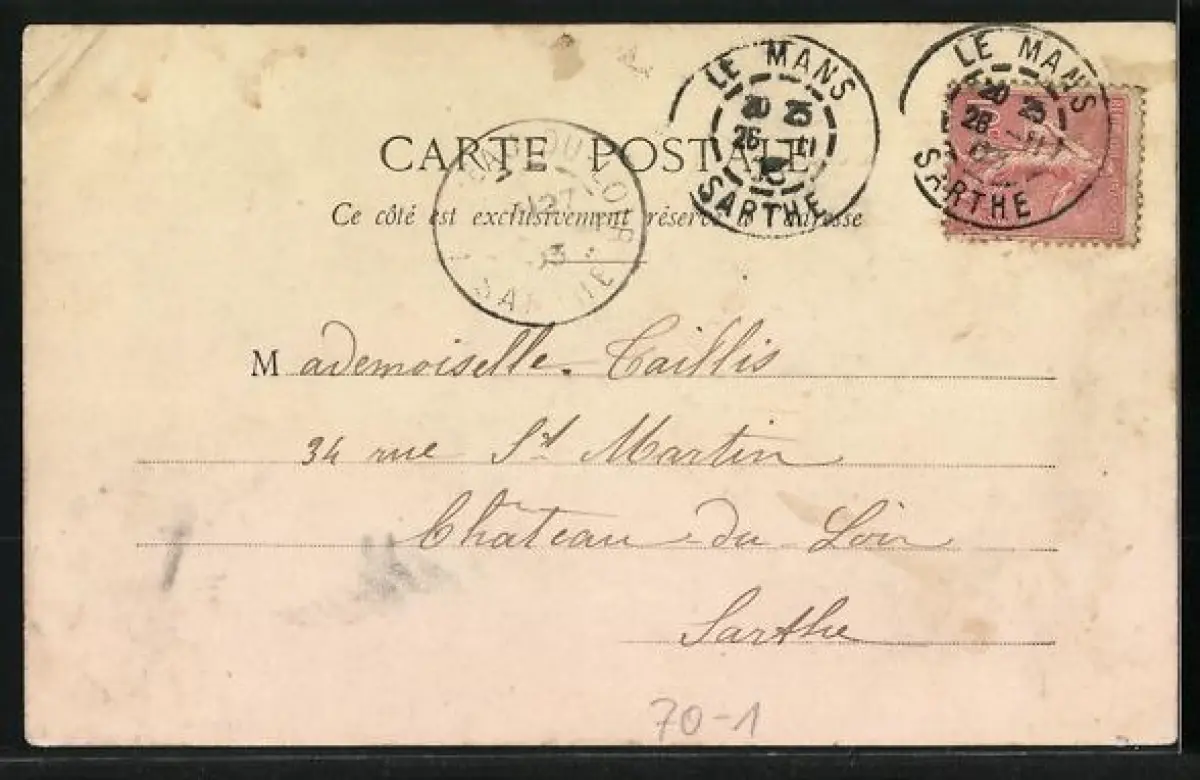 LE MANS
20 25
26 11
SARTHE
LE MANS
20 25
26 11
SARTHE
CARTE POSTALE
Ce côté est exclusivement réservé à l'adresse
SARTHE
Mademoiselle Taillis
34 rue St Martin
Château du Loir
Sarthe
70-1